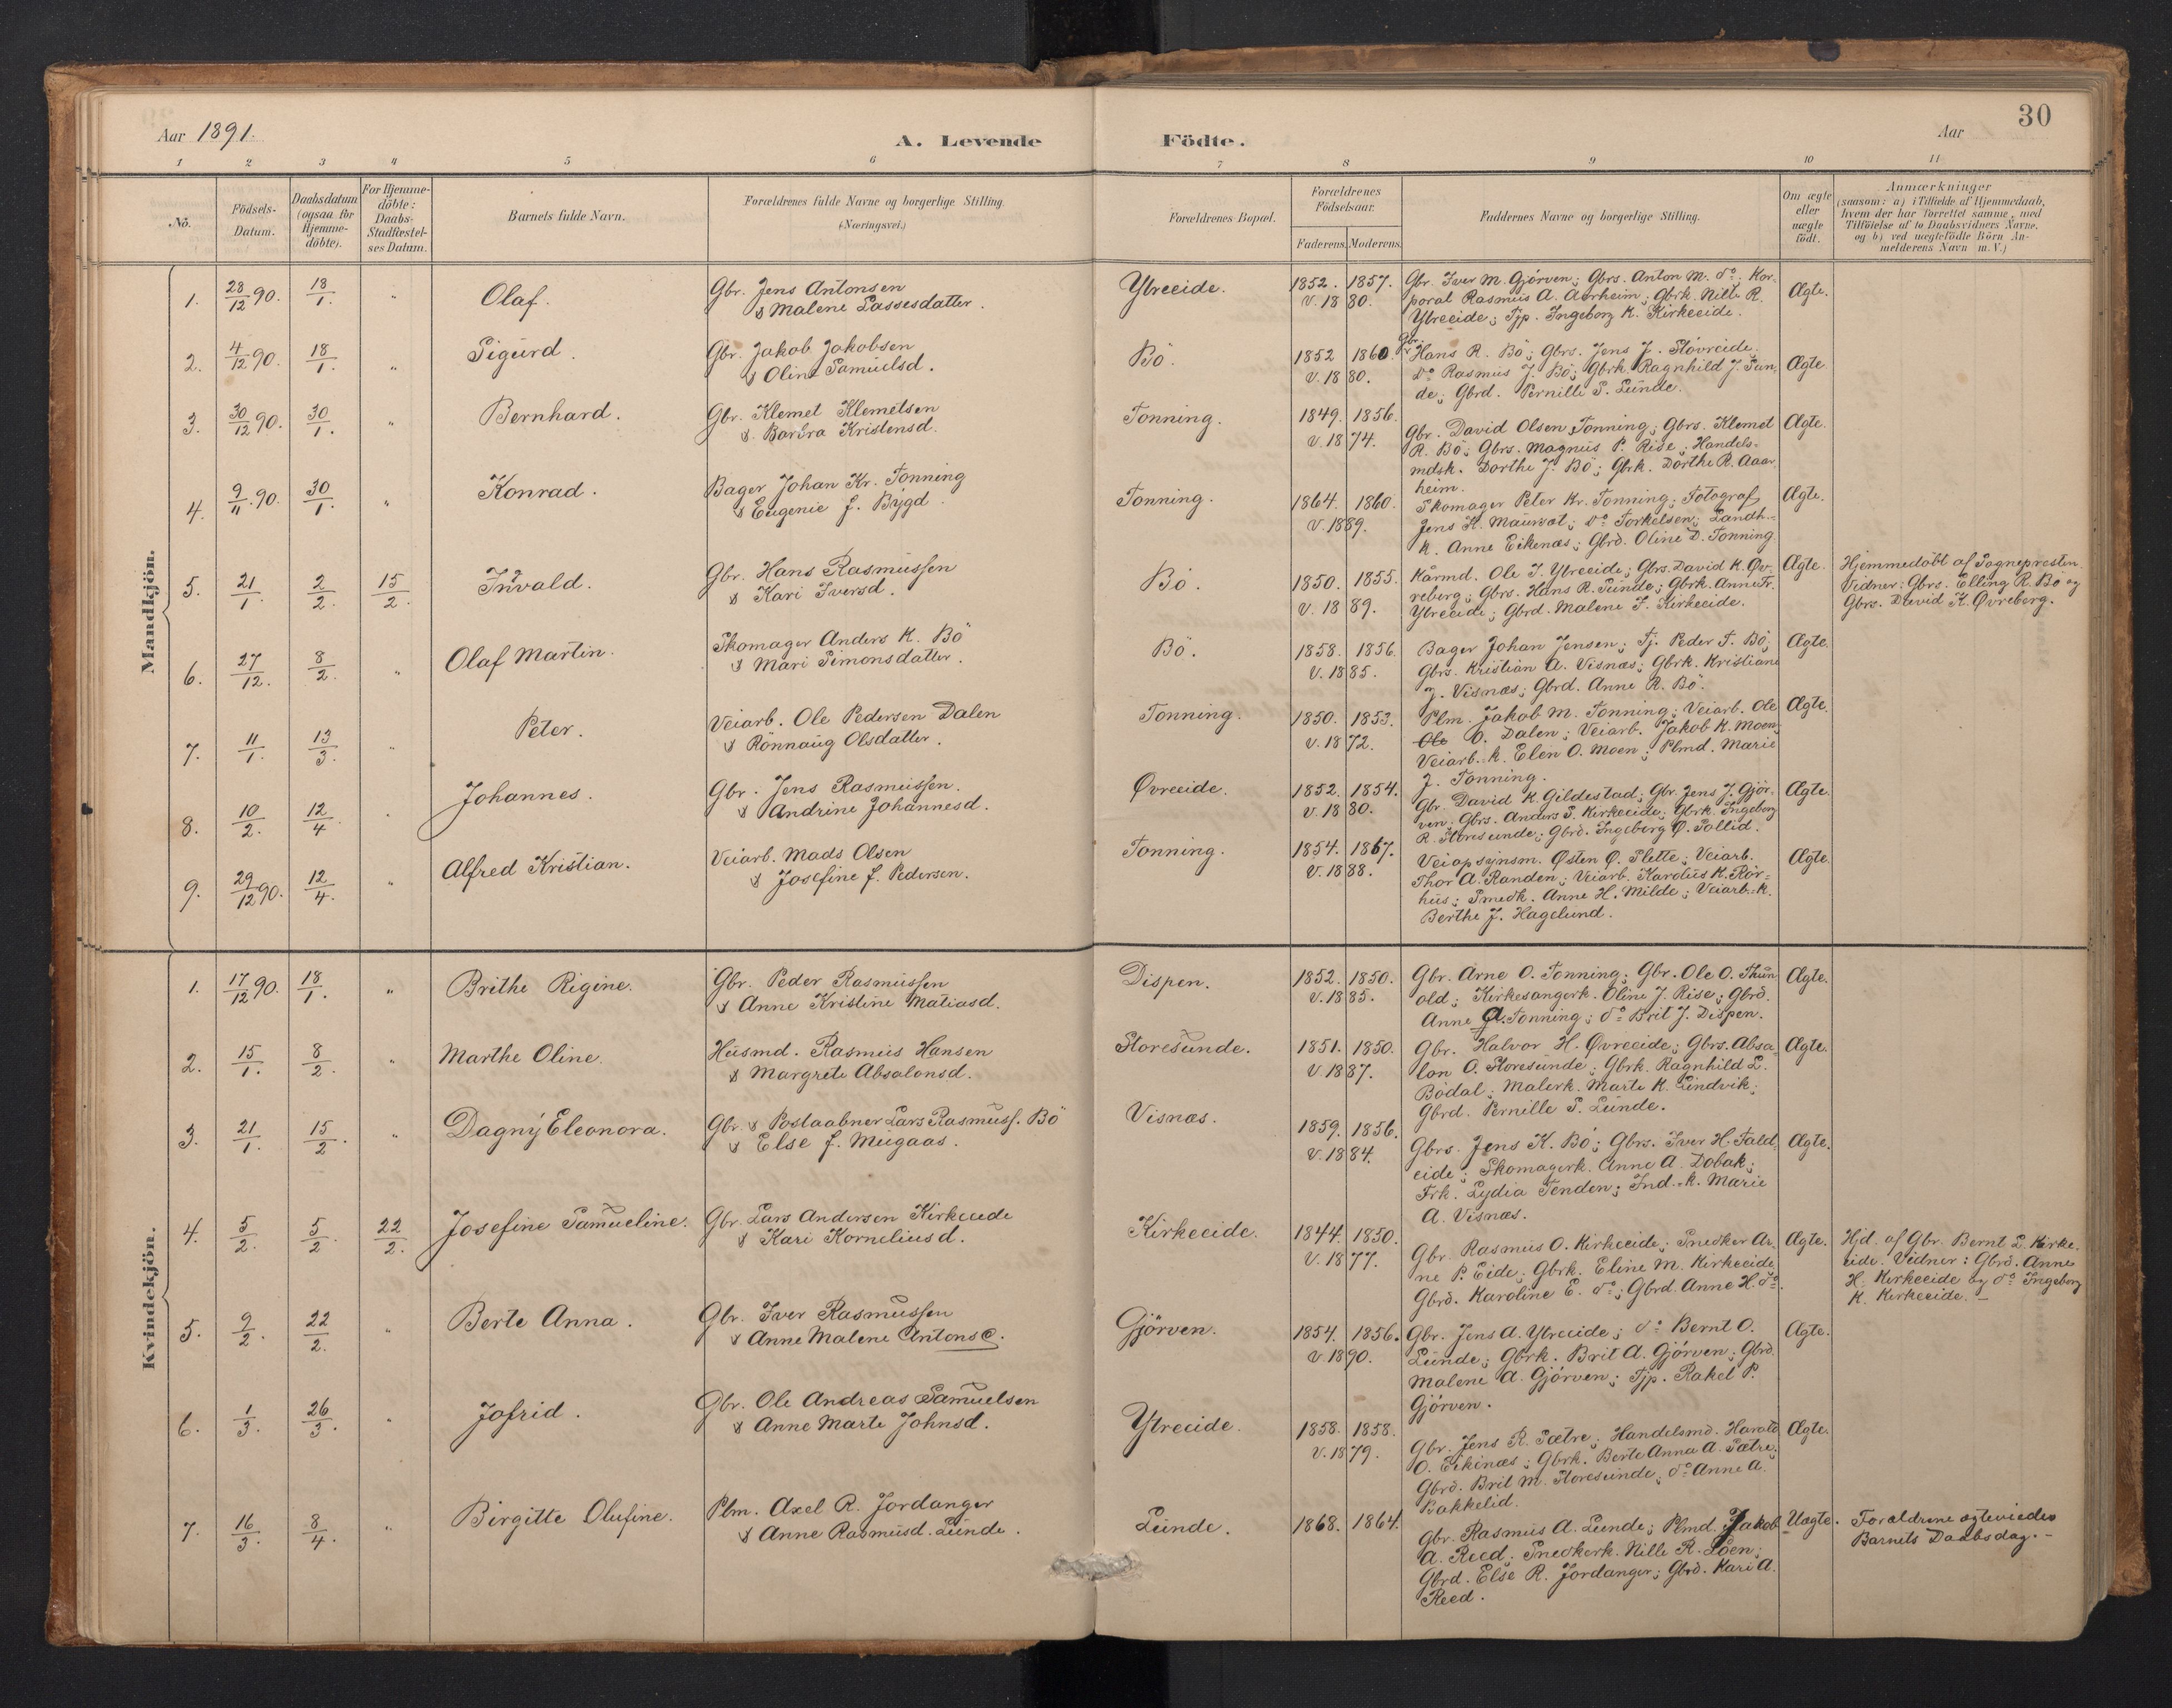 30
Aar 1891.
A. Levende Födte.
Aar
1 2 3 4 5 6 7 8 9 10 11
No.
Födsels-Datum.
Daabsdatum (ogsaa for Hjemmedöbte).
For Hjemmedöbte: Daabs-Stadfestelses Datum.
Barnets fulde Navn.
Forældrenes fulde Navne og borgerlige Stilling.
(Næringsvei.)
Forældrenes Bopæl.
Forældrenes Födselsaar.
Faderens. Moderens.
Faddernes Navne og borgerlige Stilling.
Om ægte eller uægte født.
Anmærkninger
(saasom: a) i Tilfælde af Hjemmedaab,
hvem der har forrettet samme, med
Tilföielse af to Daabsvidners Navne,
og b) ved uægtefödte Börn An-
melderens Navn m. V.)
Mandkjön.
1. 28/12 90. 18/1. " Olaf.
Gbr. Jens Antonsen
& Malene Lassesdatter.
Ytreeide. 1852. 1857.
v. 1880.
Gbr. Iver M. Gjörven; Gbrs. Anton M. do; Kor-
poral Rasmus A. Aarheim; Gbrk. Nille R.
Ytreeide; Tjp. Ingeborg K. Kirkeeide.
Ægte.
2. 4/12 90. 18/1. " Sigurd.
Gbr. Jakob Jakobsen
& Oline Samuelsd.
Bö. 1852 1860.
v. 1880.
Gbr. Hans R. Bö; Gbrs. Jens J. Stövreide;
do Rasmus J. Bö; Gbrk. Ragnhild J. Sun-
de; Gbrd. Pernille S. Lunde.
Ægte
3. 30/12 90. 30/1. " Bernhard.
Gbr. Klemet Klemetsen
& Barbra Kristensd.
Tonning. 1849. 1856.
v. 1874.
Gbr. David Olsen Tonning; Gbrs. Klemet
R. Bö; Gbrs. Magnus P. Rise; Handels-
mdsk. Dorthe J. Bö; Gbrk. Dorthe R. Aaar-
heim.
Ægte.
4. 9/11 90. 30/1. " Konrad.
Bager Johan Kr. Tonning
& Eugenie f. Bygd.
Tonning. 1864. 1860.
v. 1889.
Skomager Peter Kr. Tonning; Fotograf
Jens K. Maurset; do Torkelsen; Landh.-
k. Anne Eikenæs; Gbrd. Oline D. Tonning.
Ægte.
5. 21/1. 2/2. 15/2. Invald.
Gbr. Hans Rasmussen
& Kari Iversd.
Bö. 1850. 1855.
v. 1889.
Kårmd. Ole I. Ytreeide; Gbrs. David K. Øv-
reberg; Gbrs. Hans R. Sunde; Gbrk. Anne Fr.
Ytreeide; Gbrd. Malene J. Kirkeeide.
Ægte.
Hjemmedöbt af Sognepresten.
Vidner: Gbrs. Elling R. Bö og
Gbrs. David K. Øvreberg.
6. 27/12. 8/2. " Olaf Martin.
Skomager Anders K. Bö
& Mari Simonsdatter.
Bö. 1858. 1856.
v. 1885.
Bager Johan Jensen; Tj. Peder T. Bö;
Gbrs. Kristian A. Visnæs; Gbrk. Kristiane
J. Visnæs; Gbrd. Anne R. Bö.
Ægte.
7. 11/1. 13/3. " Peter.
Veiarb. Ole Pedersen Dalen
& Rönnaug Olsdatter.
Tonning. 1850. 1853.
v. 1872.
Plm. Jakob M. Tonning; Veiarb. Ole
Ole O. Dalen; Veiarb. Jakob K. Moen;
Veiarb.-k. Elen O. Moen; Plmd. Marie
J. Tonning.
Ægte.
8. 10/2. 12/4. " Johannes.
Gbr. Jens Rasmussen.
& Andrine Johannesd.
Øvreeide. 1852. 1854.
v. 1880.
Gbr. David K. Gildestad; Gbr. Jens J. Gjör-
ven; Gbrs. Anders S. Kirkeeide; Gbrk. Ingeborg
R. Storesunde; Gbrd. Ingeborg Ø. Sollid.
Ægte.
9. 29/12 90. 12/4. " Alfred Kristian.
Veiarb. Mads Olsen
& Josefine f. Pedersen.
Tonning. 1854. 1867.
v. 1888.
Veiopsynsm. Østen Ø. Slette; Veiarb.
Thor A. Randen; Veiarb. Karolus K. Rör-
hus; Smedk. Anne H. Milde; Veiarb.-k.
Berthe J. Hagelund.
Ægte.
Kvindekjön.
1. 17/12 90. 18/1. " Brithe Rigine.
Gbr. Peder Rasmussen
& Anne Kristine Matiasd.
Dispen. 1852. 1850.
v. 1885.
Gbr. Arne O. Tonning; Gbr. Ole O. Thun-
old; Kirkesangerk. Oline J. Rise; Gbrd.
Anne A. Tonning; do Brit J. Dispen.
Ægte.
2. 15/1. 8/2. " Marthe Oline.
Husmd. Rasmus Hansen
& Margrete Absalonsd.
Storesunde. 1851. 1850.
v. 1887.
Gbr. Halvor H. Øvreeide; Gbrs. Absa-
lon O. Storesunde; Gbrk. Ragnhild L.
Bödal; Malerk. Marte K. Lindvik;
Gbrd. Pernille S. Lunde.
Ægte.
3. 21/1. 15/2. " Dagny Eleonora.
Gbr. & Postaabner Lars Rasmuss. Bö
& Else f. Mugaas.
Visnæs. 1859. 1856.
v. 1884.
Gbrs. Jens K. Bö; Gbrs. Iver H. Fald-
eide; Skomagerk. Anne A. Dobak;
Frk. Lydia Tenden; Ind.-k. Marie
A. Visnæs.
Ægte.
4. 5/2. 5/2. 22/2. Josefine Samueline.
Gbr. Lars Andersen Kirkeeide
& Kari Korneliusd.
Kirkeeide. 1844. 1850.
v. 1877.
Gbr. Rasmus O. Kirkeeide; Snedker Ar-
ne P. Eide; Gbrk. Eline M. Kirkeeide;
Gbrd. Karoline E. do; Gbrd. Anne H. do.
Ægte.
Hjd. af Gbr. Bernt L. Kirke-
eide. Vidner: Gbrd. Anne
H. Kirkeeide og do Ingeborg
K. Kirkeeide. –
5. 9/2. 22/2. " Berte Anna.
Gbr. Iver Rasmussen
& Anne Malene Antonsd.
Gjörven. 1854. 1856.
v. 1890.
Gbr. Jens A. Ytreeide; do Bernt O.
Lunde; Gbrk. Brit A. Gjörven; Gbrd.
Malene A. Gjörven; Tjp. Rakel P.
Gjörven.
Ægte.
6. 1/3. 26/3. " Jofrid.
Gbr. Ole Andreas Samuelsen
& Anne Marte Johnsd.
Ytreeide. 1858. 1858.
v. 1879.
Gbr. Jens R. Sætre; Handelsmd. Harald
O. Eikinæs; Gbrk. Berte Anna A. Sætre;
Gbrd. Brit M. Storesunde; do Anne A.
Bakkelid.
Ægte.
7. 16/3. 8/4. " Birgitte Olufine.
Plm. Axel R. Jordanger
& Anne Rasmusd. Lunde.
Lunde. 1868. 1864.
Gbr. Rasmus A. Lunde; Plmd. Jakob
A. Reed; Snedkerk. Nille R. Loen;
Gbrd. Else R. Jordanger; Gbrd. Kari A.
Reed.
Uægte.
Forældrene ægteviedes
Barnets Daabsdag. –